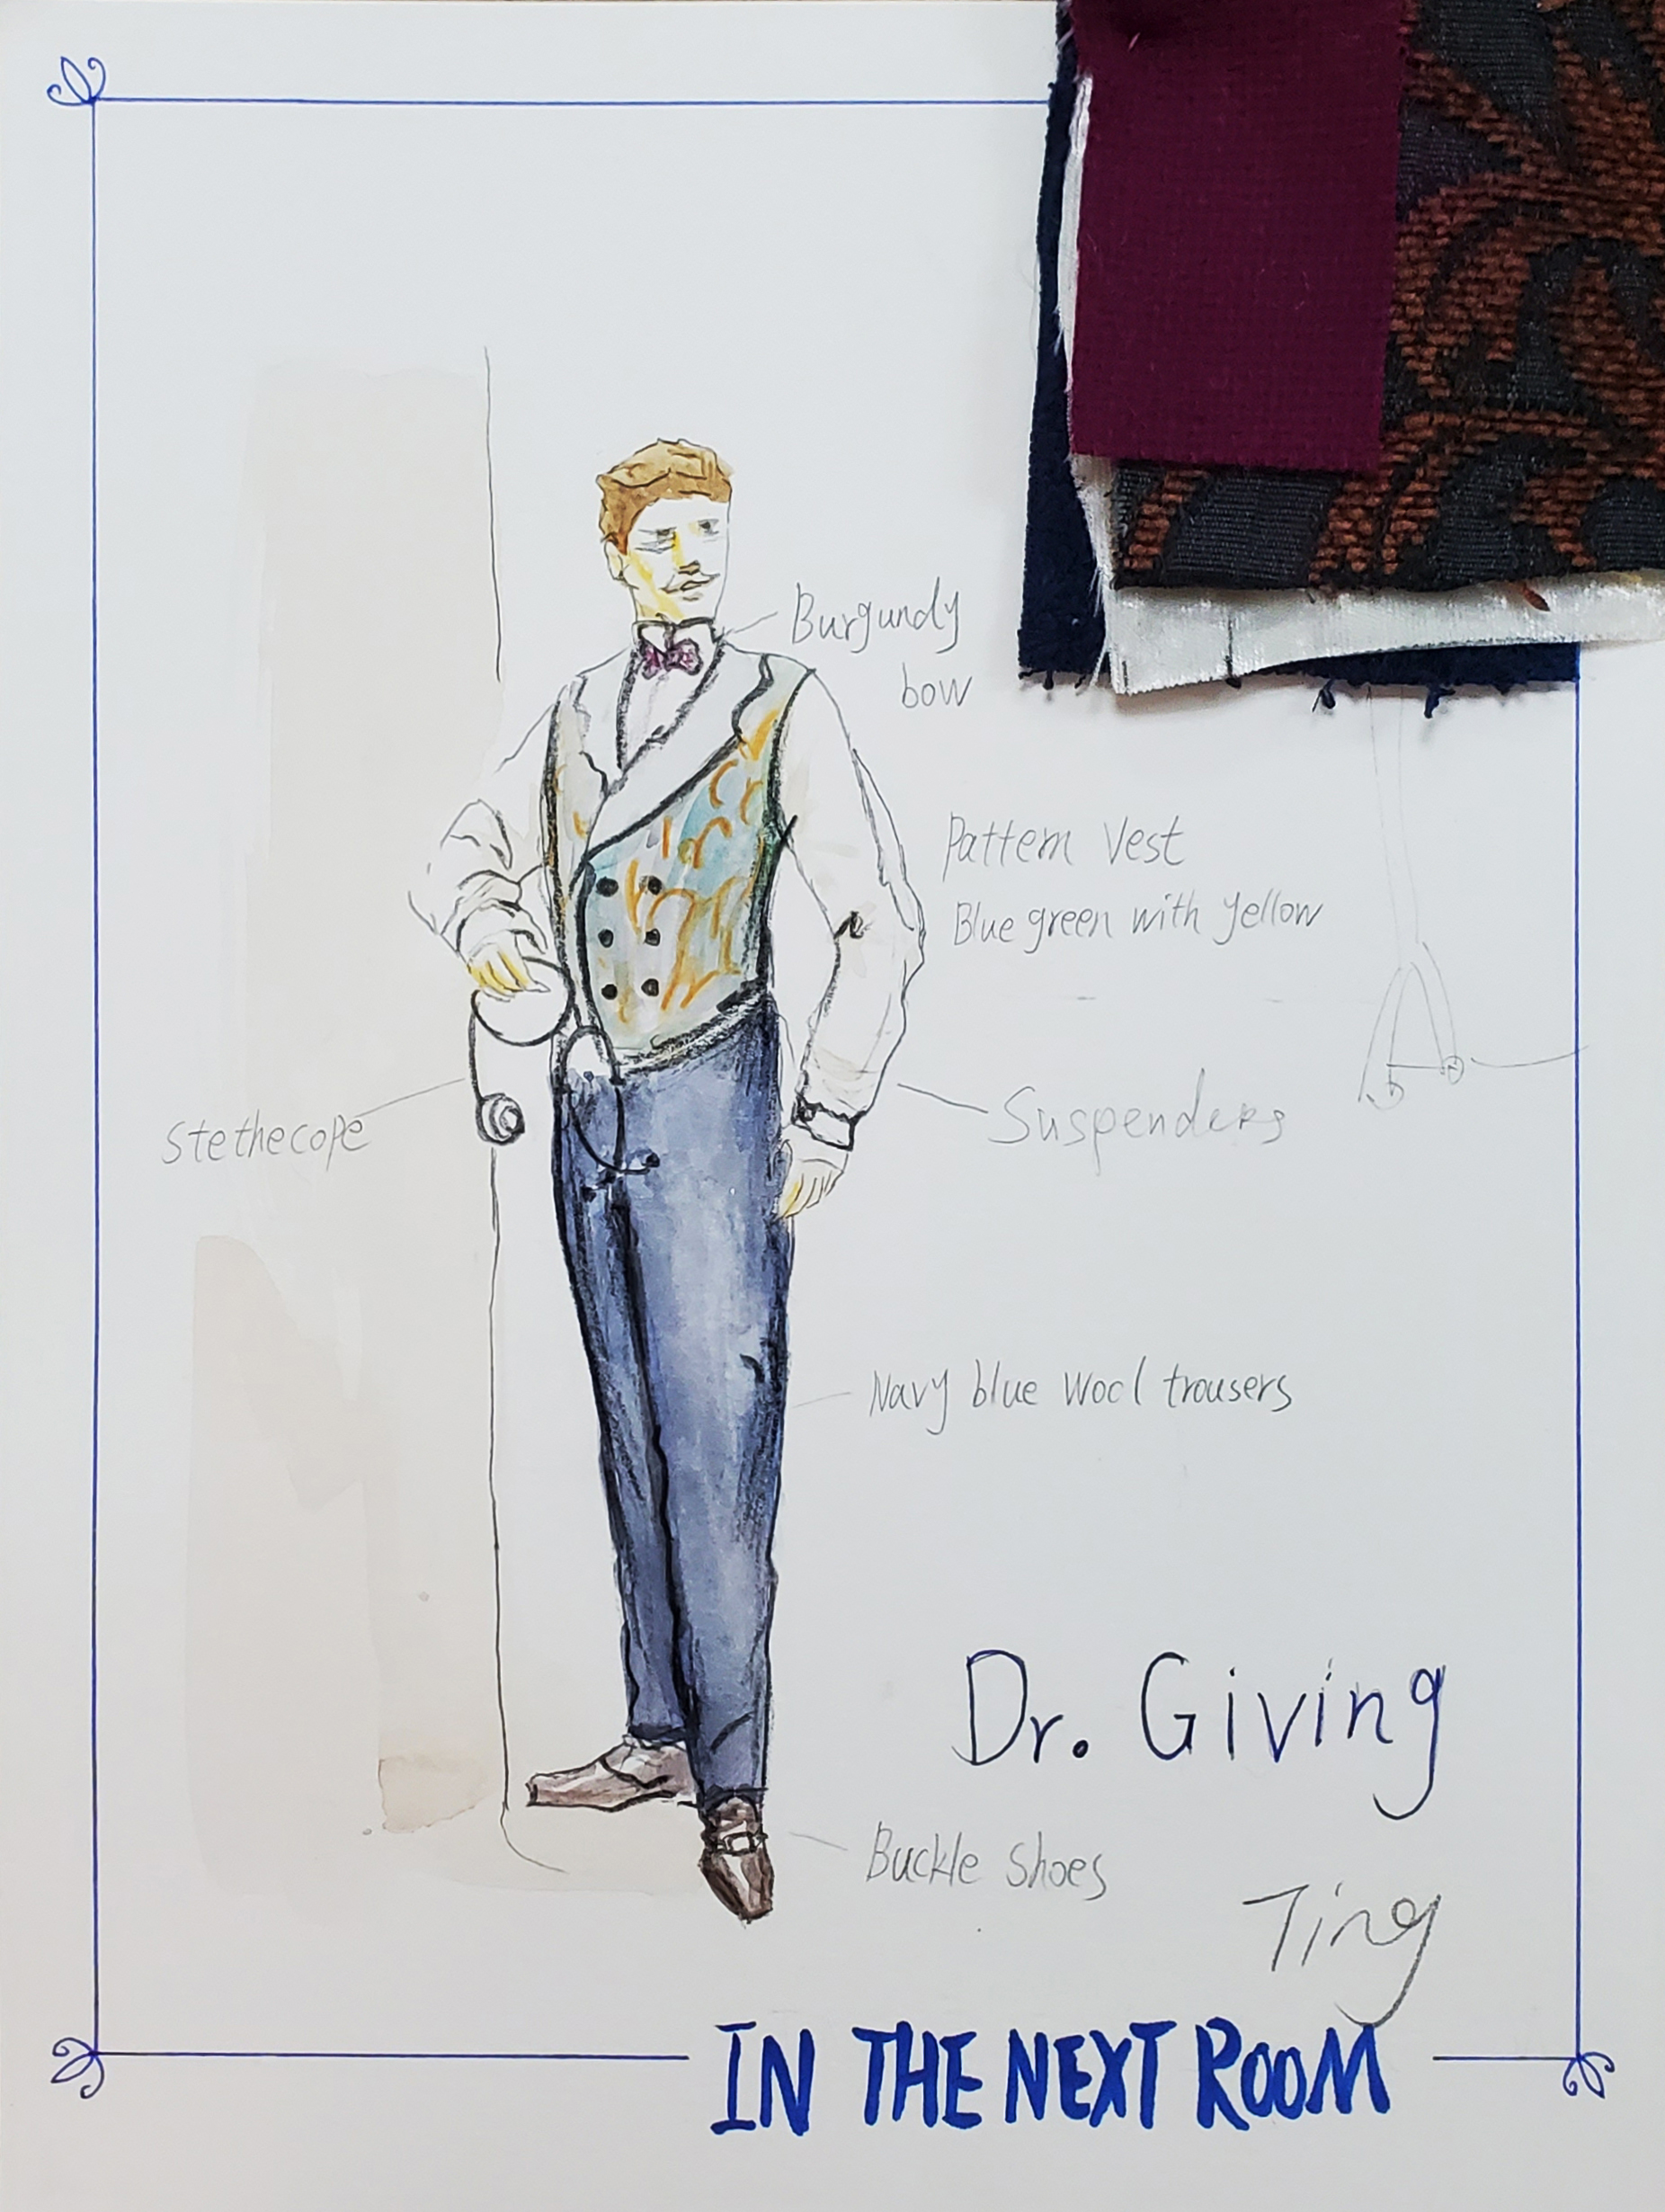 Burgundy
bow
Pattern Vest
Blue green with yellow
Stethecope
Suspenders
Navy blue wool trousers
Dr. Giving
Buckle shoes
Ting
IN THE NEXT ROOM